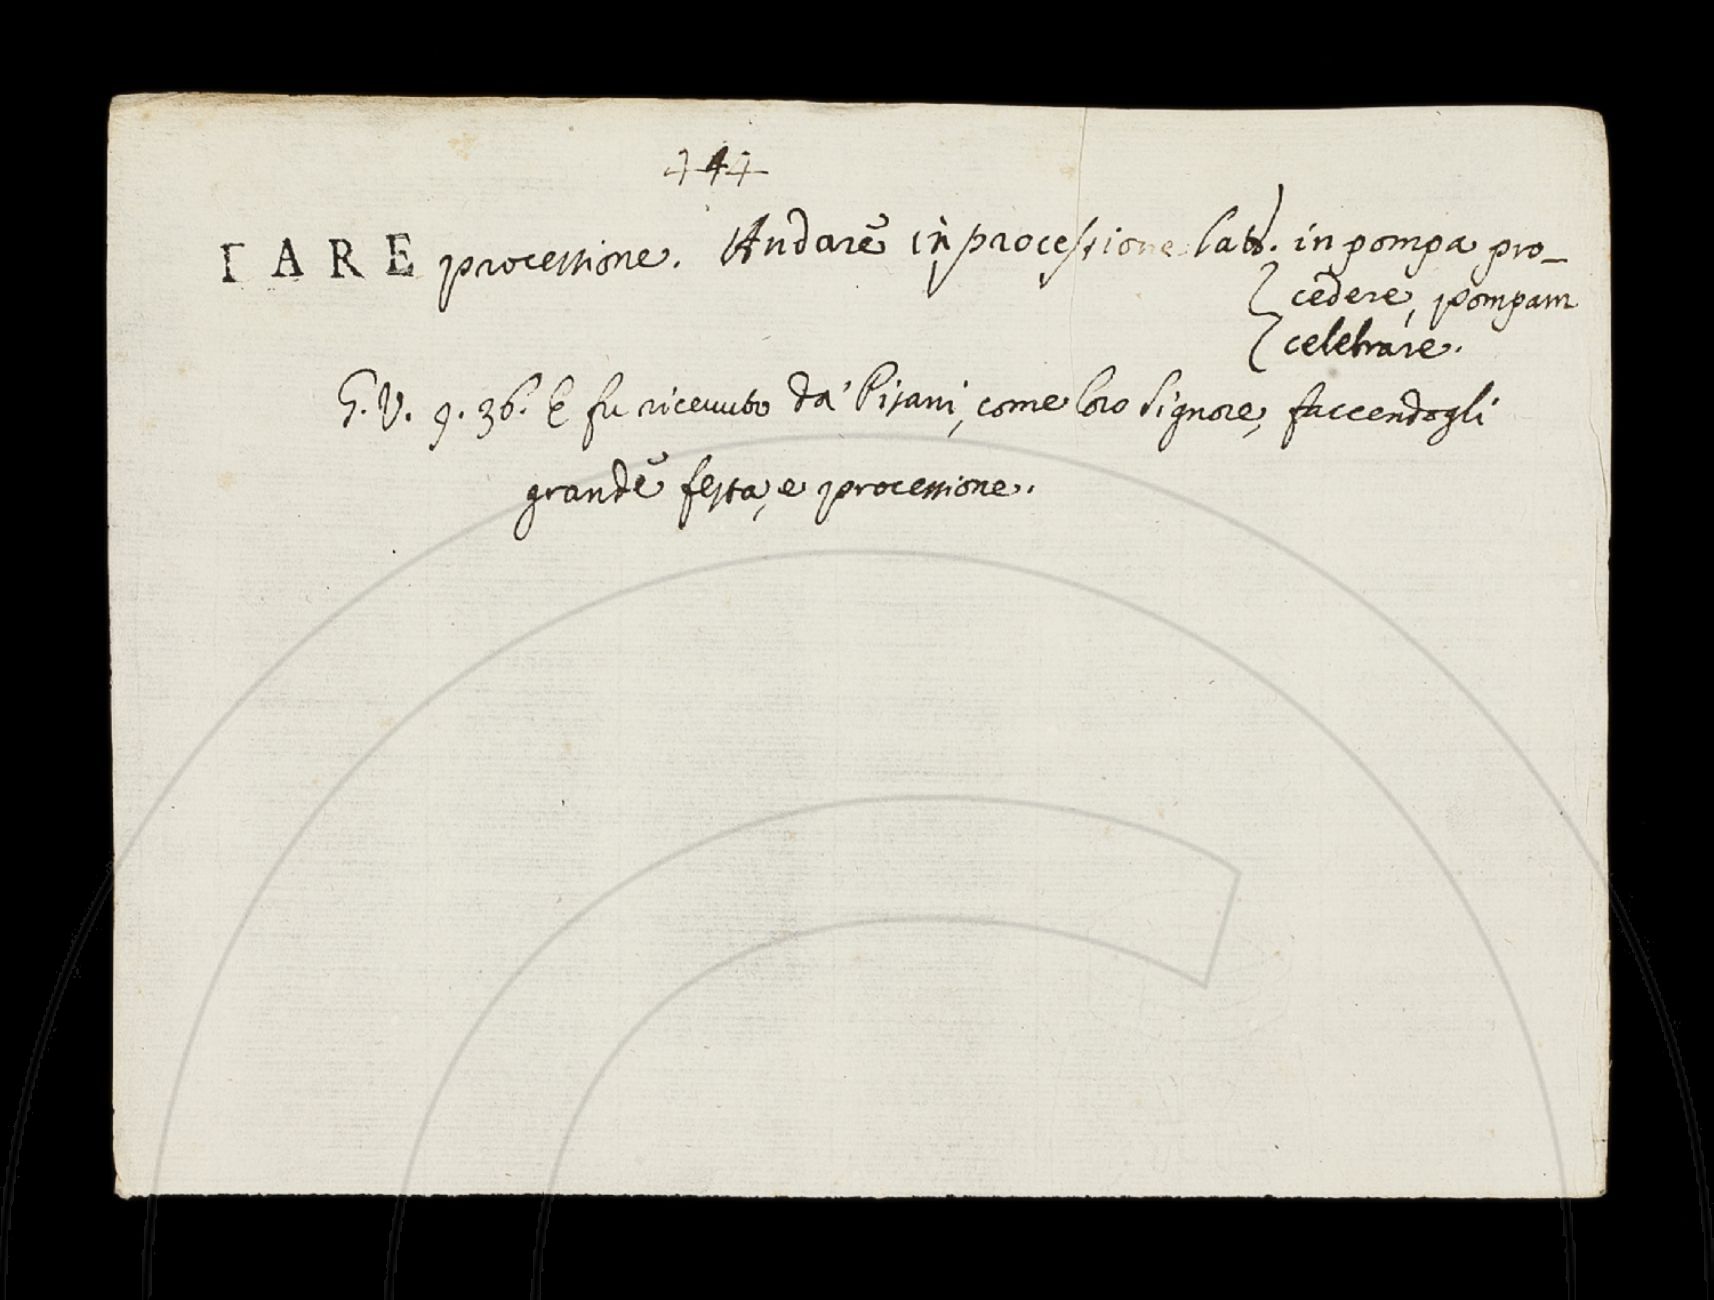 444
FARE processione. Andare in processione. latt. in pompa pro-
cedere, pompam
celebrare.
G.V. 9. 36. E fu ricevuto da' Pisani, come loro Signore, faccendogli
grande festa, e processione.